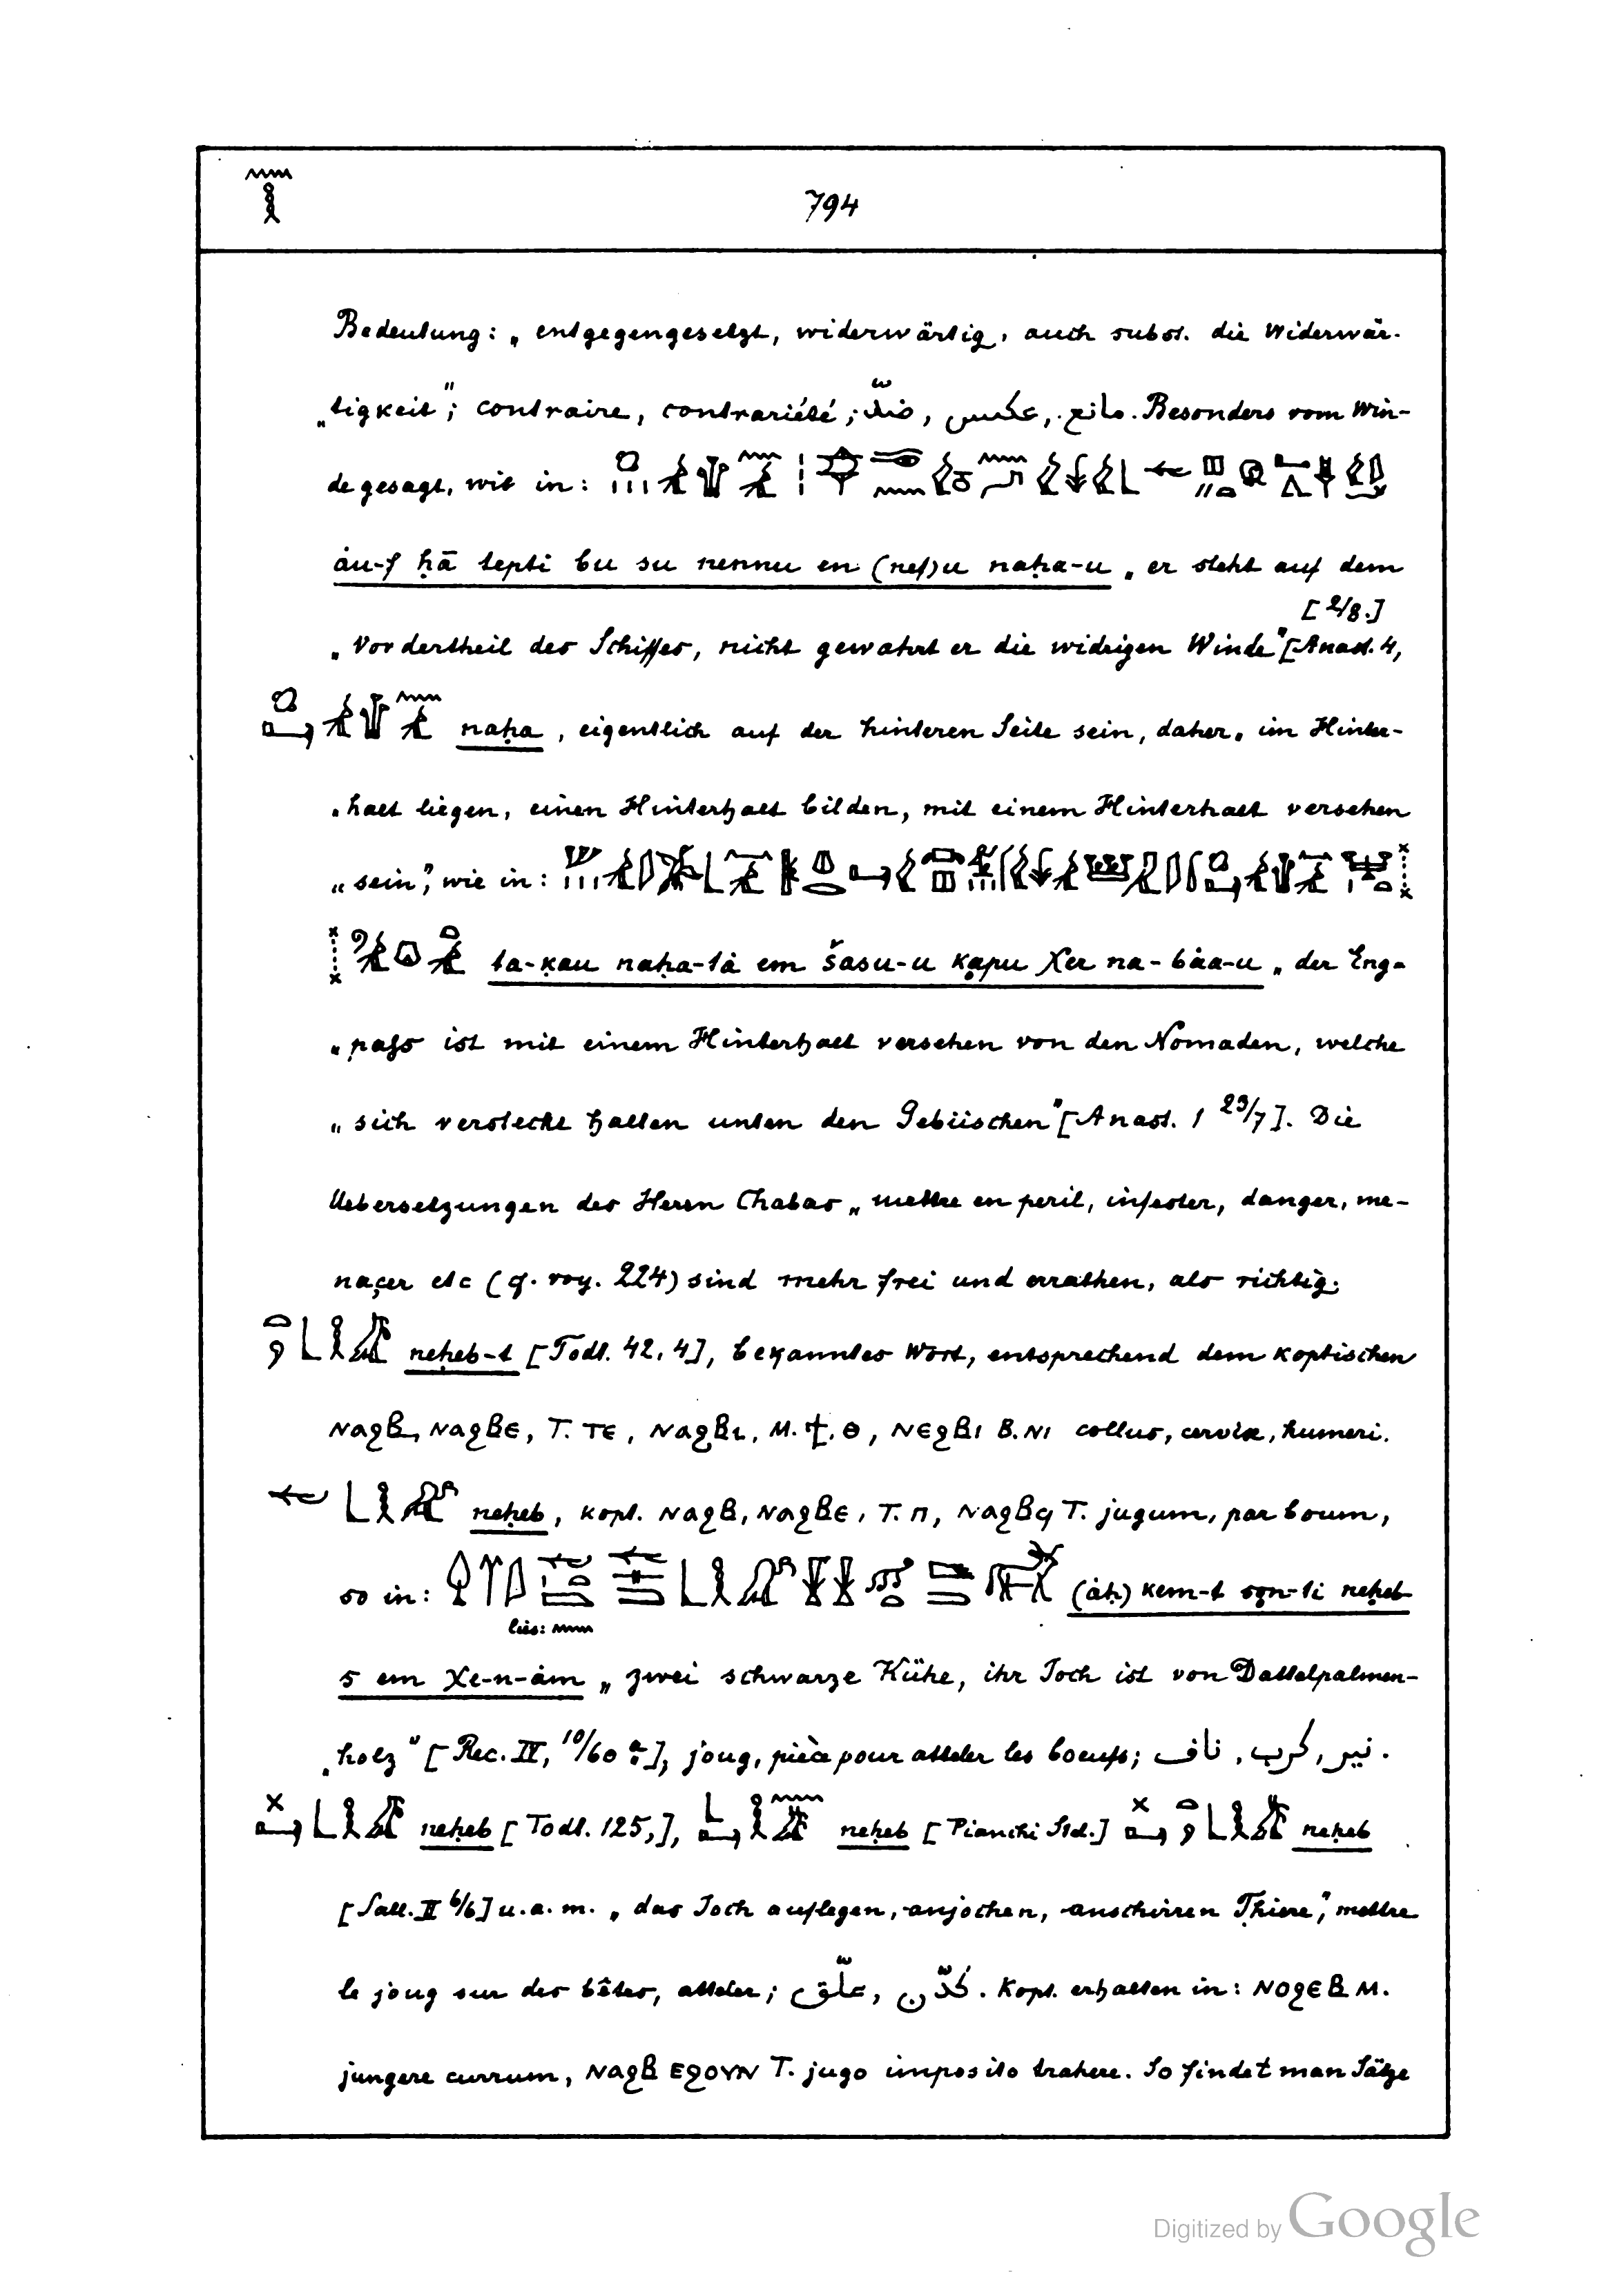 794
Bedeutung: „entgegengesetzt, widerwärtig, auch subst. die Widerwär-
„tigkeit"; contraire, contrariété; ضدّ, عكس, مانع. Besonders vom Win-
de gesagt, wie in:
áu-f ḥā tepti bu su nennu en (nef)u naḥa-u „er steht auf dem
[2/8.]
„Vordertheil des Schiffes, nicht gewahrt er die widrigen Winde" [Anast. 4,
naḥa, eigentlich auf der hinteren Seite sein, daher „im Hinter-
„halt liegen, einen Hinterhalt bilden, mit einem Hinterhalt versehen
„sein", wie in:
ta-ḳau naḥa-tȧ em šasu-u kapu χer na-bȧa-u „der Eng-
„pass ist mit einem Hinterhalt versehen von den Nomaden, welche
„sich versteckt halten unten den Gebüschen" [Anast. 1 23/7]. Die
Uebersetzungen des Herrn Chabas „mettre en peril, infester, danger, me-
naçer etc (cf. voy. 224) sind mehr frei und errathen, als richtig.
neḥeb-t [Todt. 42, 4], bekanntes Wort, entsprechend dem koptischen
ⲛⲁϩⲃ, ⲛⲁϩⲃⲉ, T. ⲧⲉ, ⲛⲁϩⲃⲓ, M. ϯ, ⲑ, ⲛⲉϩⲃⲓ B. ⲛⲓ collus, cervix, humeri.
neḥeb, kopt. ⲛⲁϩⲃ, ⲛⲁϩⲃⲉ, T. ⲡ, ⲛⲁϩⲃϥ T. jugum, par boum,
so in: (ȧḥ) kem-t sn-ti neḥeb
lies:
s em χe-n-ȧm „zwei schwarze Kühe, ihr Joch ist von Dattelpalmen-
„holz" [Rec. IV, 10/60 a], joug, pièce pour atteler les boeufs; نير, كرب, ناف.
neḥeb [Todt. 125,], neḥeb [Pianchi Std.] neḥeb
[Sall. II 6/6] u. a. m. „das Joch auflegen, anjochen, anschirren Thiere", mettre
le joug sur des bêtes, atteler; كدّن, علّق. Kopt. erhalten in: ⲛⲟϩⲉⲃ M.
jungere currum, ⲛⲁϩⲃ ⲉϩⲟⲩⲛ T. jugo imposito trahere. So findet man Sätze
Digitized by Google